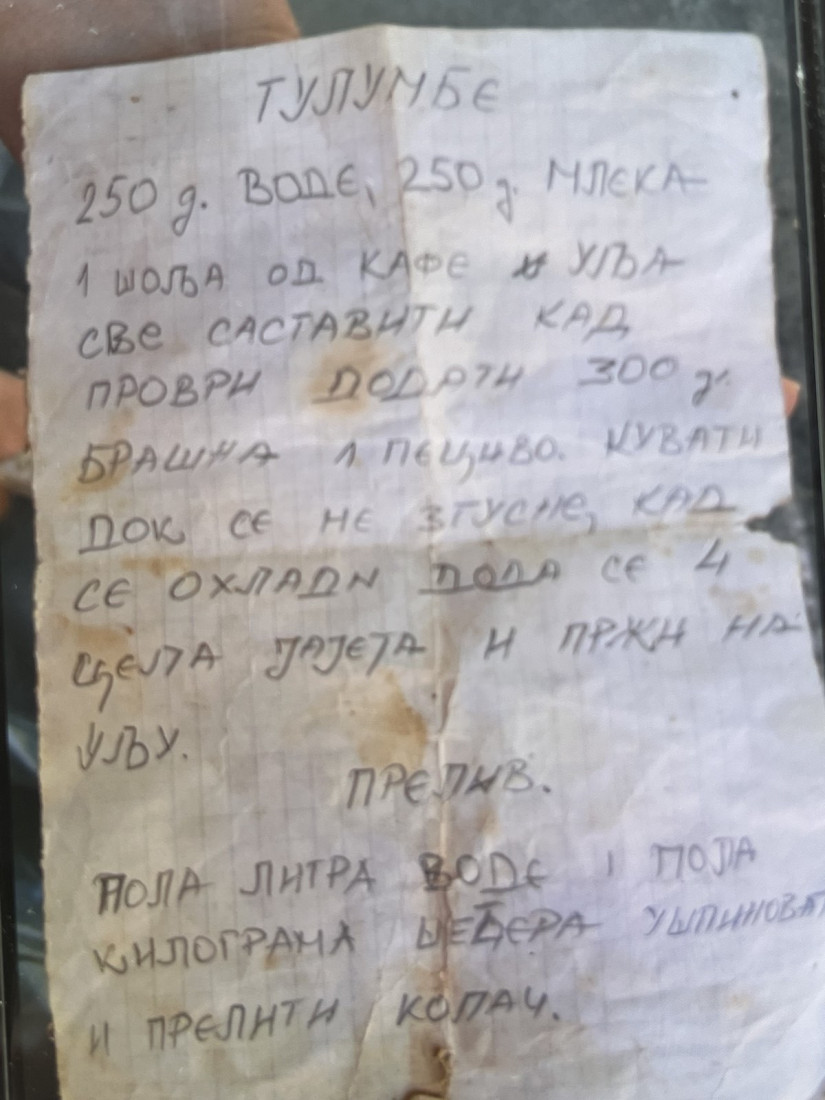 ТУЛУМБЕ
250 g. ВОДЕ, 250 g. МЛЕКА
1 ШОЉА ОД КАФЕ УЉА
СВЕ САСТАВИТИ КАД
ПРОВРИ ДОДАТИ 300 g.
БРАШНА 1 ПЕЦИВО. КУВАТИ
ДОК СЕ НЕ ЗГУСНЕ, КАД
СЕ ОХЛАДИ ДОДА СЕ 4
ЦЕЛА ЈАЈЕТА И ПРЖИ НА
УЉУ.
ПРЕЛИВ.
ПОЛА ЛИТРА ВОДЕ И ПОЛА
КИЛОГРАМА ШЕЋЕРА УШПИНОВАТ
И ПРЕЛИТИ КОЛАЧ.